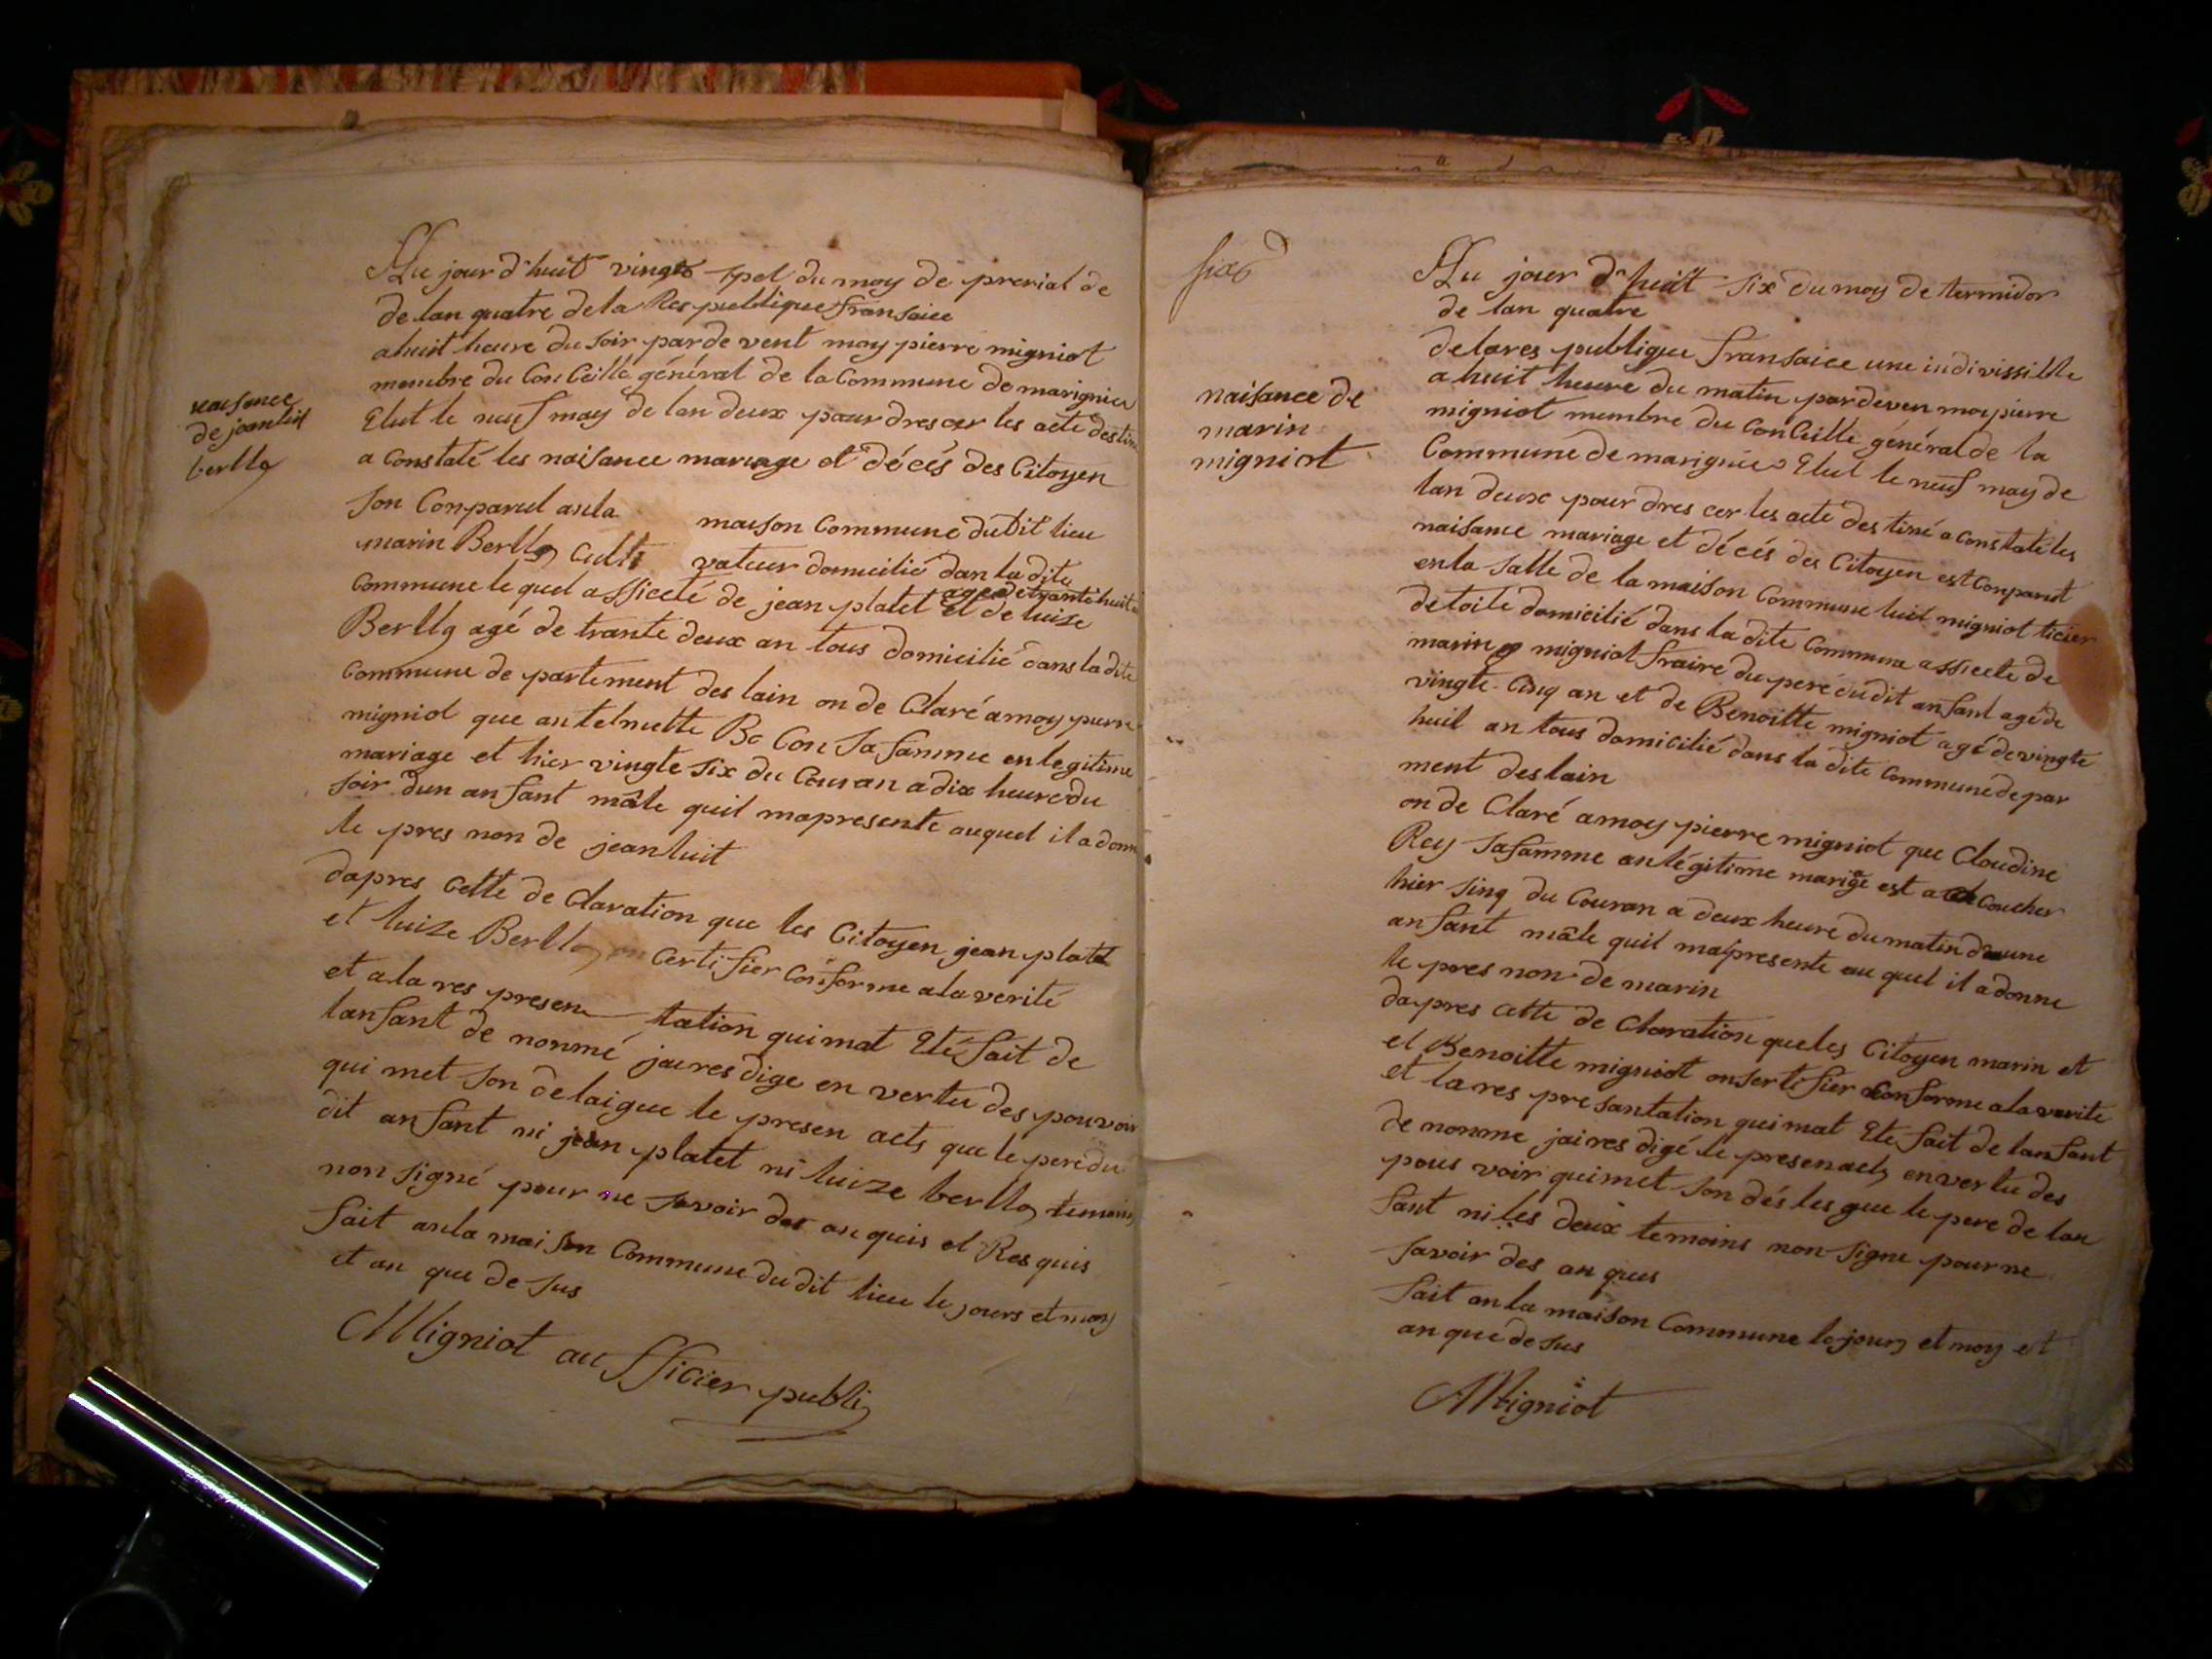 naisance
de jeanluit
berllg
Au jour d'huit vingt spet du moy de prerial de
de lan quatre de la Respublique fransaice
a huit heure du soir par de vent moy pierre migniot
membre du Conceille général de la Commune de marignieu
Elut le neuf may de lan deux pour drescer les acte destiné
a Constaté les naisance mariage et décés des Citoyen
son Conparut anla maison Commune du Dit lieu
marin Berllg Culti vateur domicilié dan la dite
agé de trante huit
Commune le quel assiceté de jean platet et de luize
Berllg agé de trante deux an tous domicilié dans la dite
Commune de partement des lain on de Claré a moy pierre
migniot que antelmette Bo Con sa famme en legitime
mariage et hier vingte six du Couran a dix heure du
soir dun anfant mâle quil mapresente auquel il a donn
le pres non de jeanluit
dapres cette de Claration que les Citoyen jean platet
et luize Berllg on Certifier Conforme a la verité
et a la res presen tation qui mat Eté fait de
lanfant de nonmé jai res dige en vertu des pouvoir
qui met son delaigue le presen acts que le pere du
dit anfant ni jean platet ni luize berllg temoins
non signé pour ne savoir des an quis et Res quis
fait anla maison Commune du dit lieu le jours et moy
et an que de sus
Migniot aufficier publi
six
naisance de
marin
migniot
Au jour d'huit six du moy de termidor
de lan quatre
de lares publique fransaice une indivissible
a huit heure du matin par deven moy pierre
migniot membre du Conceille général de la
Commune de marignieu Elut le neuf may de
lan deux pour dres cer les acte des tiné a Constaté les
naisance mariage et décés des Citoyen est Conparut
en la salle de la maison Commune luit migniot ticier
de toile domicilié dans la dite Commune assiceté de
marin migniot fraire du pere du dit anfant agé de
vingte-Cinq an et de Benoitte migniot agé de vingte
huit an tous domicilié dans la dite Commune de par
ment des lain
on de Claré a moy pierre migniot que Cloudine
Rey safamme an légitime mariage est a Coucher
hier sinq du Couran a deux heure du matin daune
anfant mâle quil mapresente au quel il a donne
le pres non de marin
dapres cette de Claration que les Citoyen marin et
et Benoitte migniot on sertifier Conforme a la verite
et lares presantation qui mat Ete fait de lanfant
de nonme jai res digé le presen acts en vertu des
pous voir qui met son dés les gue le pere de lan
fant ni les deux temoins non signe pour ne
savoir des an ques
fait anla maison Commune le jours et moy et
an que de sus
Migniot